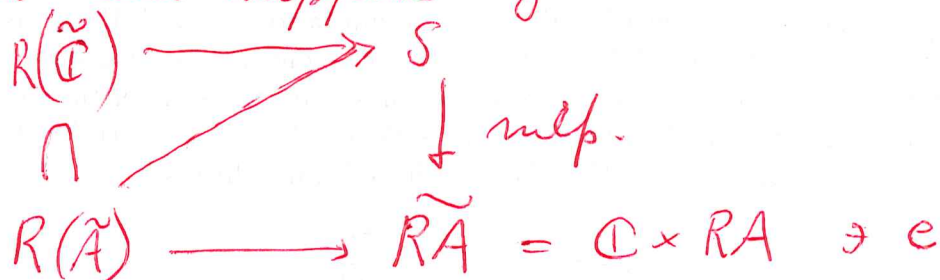 R(ℂ̃) ⟶ S
∩ ↓ nilp.
R(Ã) ⟶ R͠A = ℂ × RA ∋ e